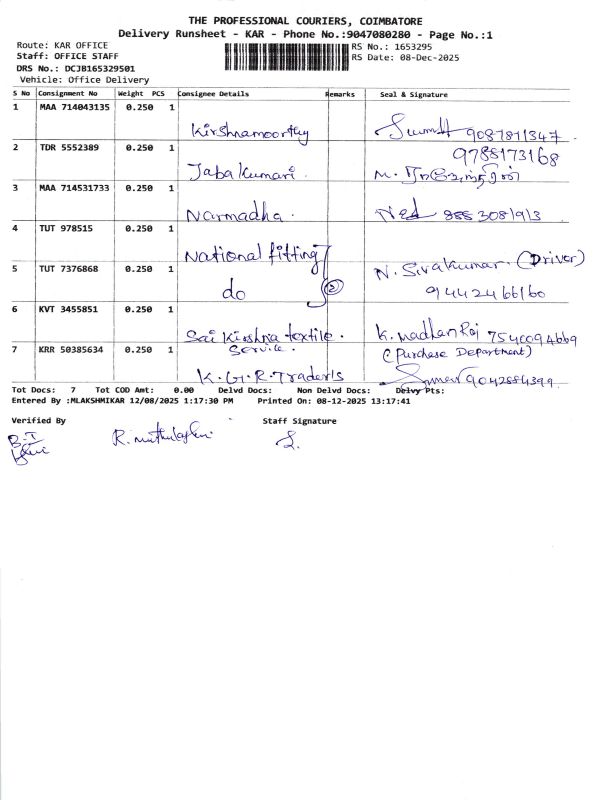 THE PROFESSIONAL COURIERS, COIMBATORE
Delivery Runsheet - KAR - Phone No.:9047080280 - Page No.:1
Route: KAR OFFICE
RS No.: 1653295
Staff: OFFICE STAFF
RS Date: 08-Dec-2025
DRS No.: DCJB165329501
Vehicle: Office Delivery
S No Consignment No Weight PCS Consignee Details Remarks Seal & Signature
1 MAA 714043135 0.250 1
Kirshnamoorthy 9087811347
2 TDR 5552389 0.250 1 9788173168
Jabakumari M.
3 MAA 714531733 0.250 1
Narmadha. 8883081913
4 TUT 978515 0.250 1
National fitting N. Sivakumar. (Driver)
5 TUT 7376868 0.250 1
do 2 9442466160
6 KVT 3455851 0.250 1
Sai Kirshna textile. K. Madhan Raj 7540094669
7 KRR 50385634 0.250 1 Service. (Purchase Department)
K.G.R.Trader's 9042884399
Tot Docs: 7 Tot COD Amt: 0.00 Delvd Docs: Non Delvd Docs: Delvy Pts:
Entered By :MLAKSHMIKAR 12/08/2025 1:17:30 PM Printed On: 08-12-2025 13:17:41
Verified By Staff Signature